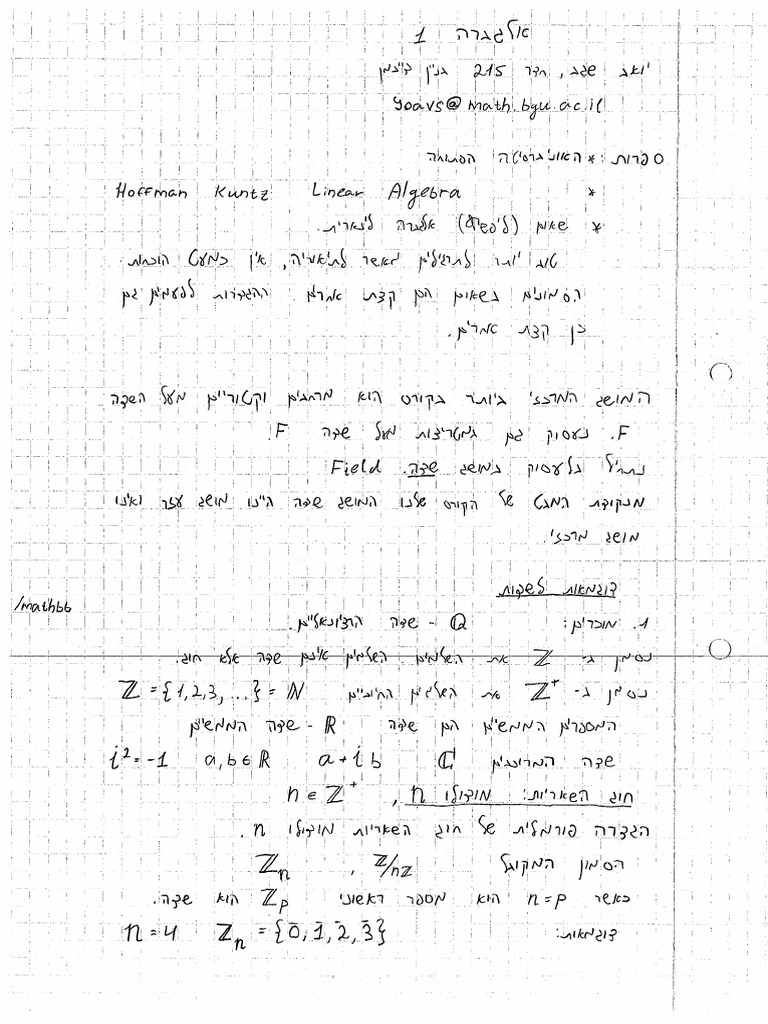 אלגברה 1
יואב שגב, חדר 215 בנין דייזמן
yoavs@math.byu.ac.il
ספרות: * האוניברסיטה הפתוחה
* Hoffman Kuntz Linear Algebra
* שאום (ליפשיץ) אלגברה לינארית.
טוב יותר לתרגילים מאשר לתיאוריה, אין כמעט הוכחות.
הסמונים בשאום הם קצת אחרים. ההגדרות לפעמים גם
כן קצת אחרים.
המושג המרכזי ביותר בקורס הוא מרחבים וקטוריים מעל השדה
F. נעסוק גם במטריצות מעל שדה F.
נתחיל בלעסוק במושג שדה. Field
מנקודת המבט של הקורס שלנו המושג שדה היינו מושג עזר ואינו
מושג מרכזי.
דוגמאות לשדות
/math66
1. מוכרים: Q - שדה הרציונאליים.
נסמן ב- Z את השלמים. השלמים אינם שדה אלא חוג.
נסמן ב- Z⁺ את השלמים החיוביים Z = {1,2,3, ...} = N
המספרים הממשיים הם שדה R - שדה הממשיים
שדה המרוכבים C a + i b a,b ∈ R i² = -1
חוג השאריות: מודולו n, n ∈ Z⁺
הגדרה פורמלית של חוג השאריות מודולו n.
הסמון המקובל Z/nZ , Zₙ
כאשר n=p הוא מספר ראשוני Zₚ הוא שדה.
דוגמאות: n = 4 Zₙ = {0̄, 1̄, 2̄, 3̄}